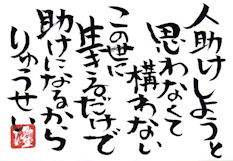 人助けしようと
思わなくて
構わない
この世に
生きるだけで
助けになるから
りゅうせい